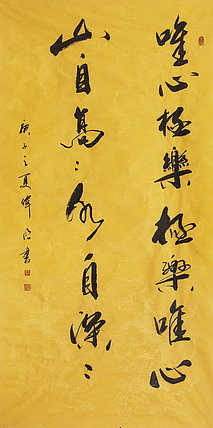 唯心極樂極樂唯心
山自高〻水自深〻
庚子之夏偉書